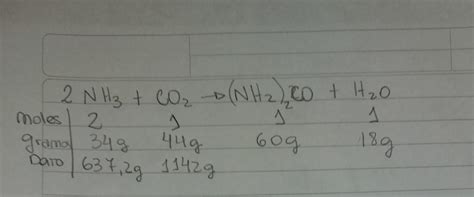 2 NH3 + CO2 → (NH2)2CO + H2O
moles | 2 1 1 1
gramo | 34g 44g 60g 18g
Dato | 637,2g 1142g